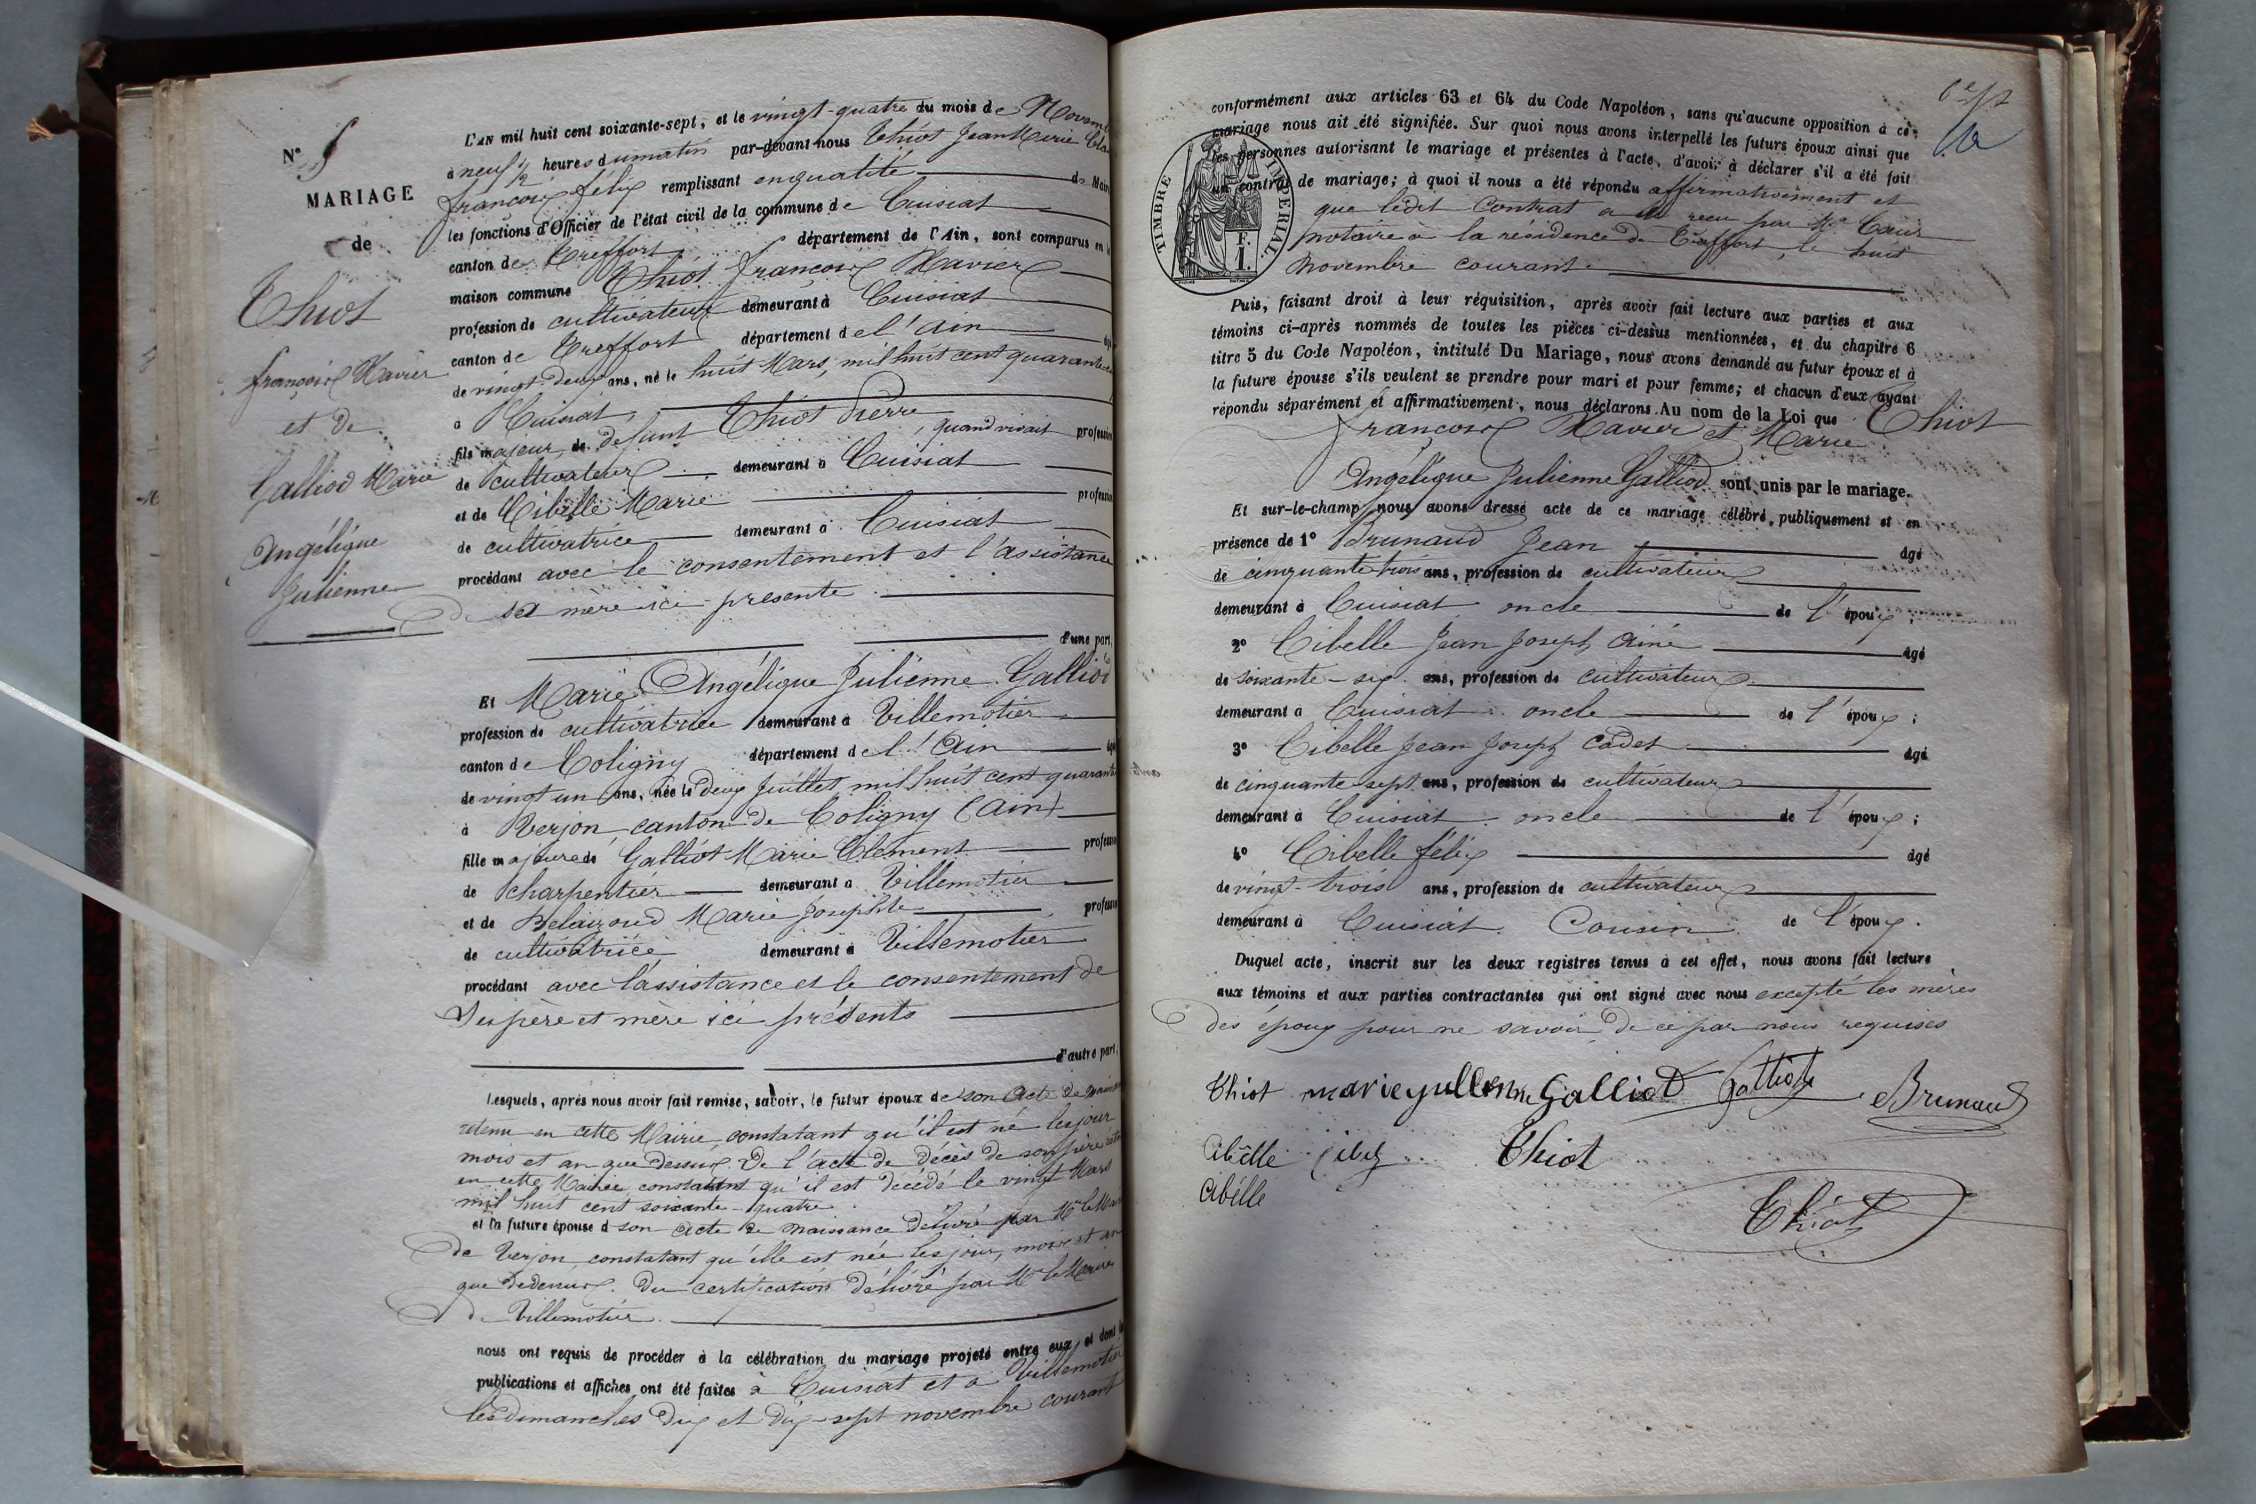 N°
MARIAGE
de
Thiot
françois Xavier
et de
Galliod Marie
Angélique
Julienne
L'AN mil huit cent soixante-sept, et le vingt-quatre du mois de Novem
à neuf ½ heures du matin par-devant nous Thiot Jean Marie
françois félix remplissant en qualité de Mair
les fonctions d'Officier de l'état civil de la commune de Cuisiat
canton de Treffort département de l'Ain, sont comparus en
maison commune Thiot françois Xavier
profession de cultivateur demeurant à Cuisiat
canton de Treffort département de l'ain
de vingt-deux ans, né le huit Mars, mil huit cent quarante
à Cuisiat,
fils majeur de défunt Thiot Pierre, quand vivait profession
de cultivateur demeurant à Cuisiat
et de Cibelle Marie profession
de cultivatrice demeurant à Cuisiat
procédant avec le consentement et l'assistance
de sa mère ici présente
d'une part,
Et Marie Angélique Julienne Galliod
profession de cultivatrice demeurant à Villemotier
canton de Coligny département de l'Ain
de vingt un ans, née le deux Juillet mil huit cent quarante
à Verjon canton de Coligny (Ain)
fille majeure de Galliot Marie Clément profession
de charpentier demeurant à Villemotier
et de Marie Josephte profession
de cultivatrice demeurant à Villemotier
procédant avec l'assistance et le consentement de
ses père et mère ici présents
d'autre part.
Lesquels, après nous avoir fait remise, savoir, le futur époux de son acte de
retenu en cette Mairie constatant qu'il est né les jour
mois et an que dessus. De l'acte de décès de son père
en cette Mairie constatant qu'il est décédé le vingt Mars
mil huit cent soixante-quatre
et la future épouse d son acte de naissance délivré par Mr le Mair
de Verjon constatant qu'elle est née les jour, mois et an
que dedessus. Du certification délivré par Mr le Maire
de Villemotier.
nous ont requis de procéder à la célébration du mariage projeté entre eux, et dont
publications et affiches ont été faites à Cuisiat et à Villemotier
les dimanches dix et dix-sept novembre courant
conformément aux articles 63 et 64 du Code Napoléon, sans qu'aucune opposition à ce
mariage nous ait été signifiée. Sur quoi nous avons interpellé les futurs époux ainsi que
les personnes autorisant le mariage et présentes à l'acte, d'avoir à déclarer s'il a été fait
un contrat de mariage; à quoi il nous a été répondu affirmativement et
que ledit Contrat a été reçu par Me
notaire à la résidence de Treffort, le huit
novembre courant.
TIMBRE IMPERIAL
F.
1.
Puis, faisant droit à leur réquisition, après avoir fait lecture aux parties et aux
témoins ci-après nommés de toutes les pièces ci-dessus mentionnées, et du chapitre 6
titre 5 du Code Napoléon, intitulé Du Mariage, nous avons demandé au futur époux et à
la future épouse s'ils veulent se prendre pour mari et pour femme; et chacun d'eux ayant
répondu séparément et affirmativement, nous déclarons Au nom de la Loi que Thiot
François Xavier et Marie
Angélique Julienne Galliod sont unis par le mariage.
Et sur-le-champ nous avons dressé acte de ce mariage célébré publiquement et en
présence de 1° Brunaud Jean âgé
de cinquante trois ans, profession de cultivateur
demeurant à Cuisiat oncle de l'époux;
2° Cibelle Jean Joseph Ainé âgé
de soixante-six ans, profession de cultivateur
demeurant à Cuisiat oncle de l'époux;
3° Cibelle Jean Joseph cadet âgé
de cinquante sept ans, profession de cultivateur
demeurant à Cuisiat oncle de l'époux;
4° Cibelle félix âgé
de vingt-trois ans, profession de cultivateur
demeurant à Cuisiat Cousin de l'époux.
Duquel acte, inscrit sur les deux registres tenus à cet effet, nous avons fait lecture
aux témoins et aux parties contractantes qui ont signé avec nous excepté les mères
des époux pour ne savoir de ce par nous requises
Thiot marie julienne Galliot Galliot Brunaud
Cibelle Thiot
Cibelle
Thiot